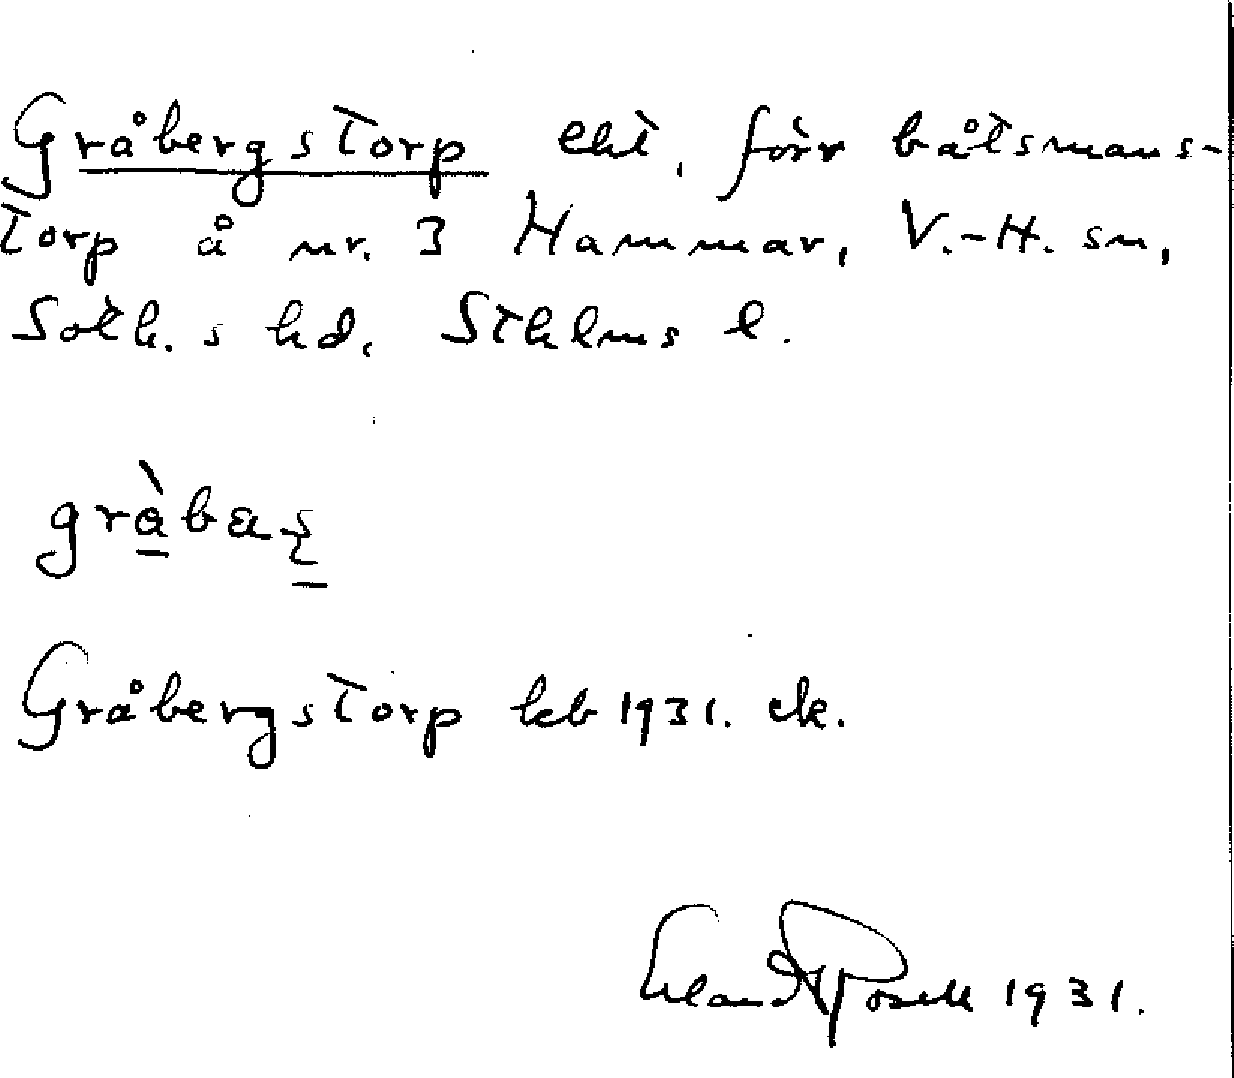 Gråbergstorp lht, förr båtsmans-
torp å nr. 3 Hammar, V.-H. sn,
Soth.s hd, Sthlms l.
Gråbergstorp kb 1931. ek.
Erland Rosell 1931.